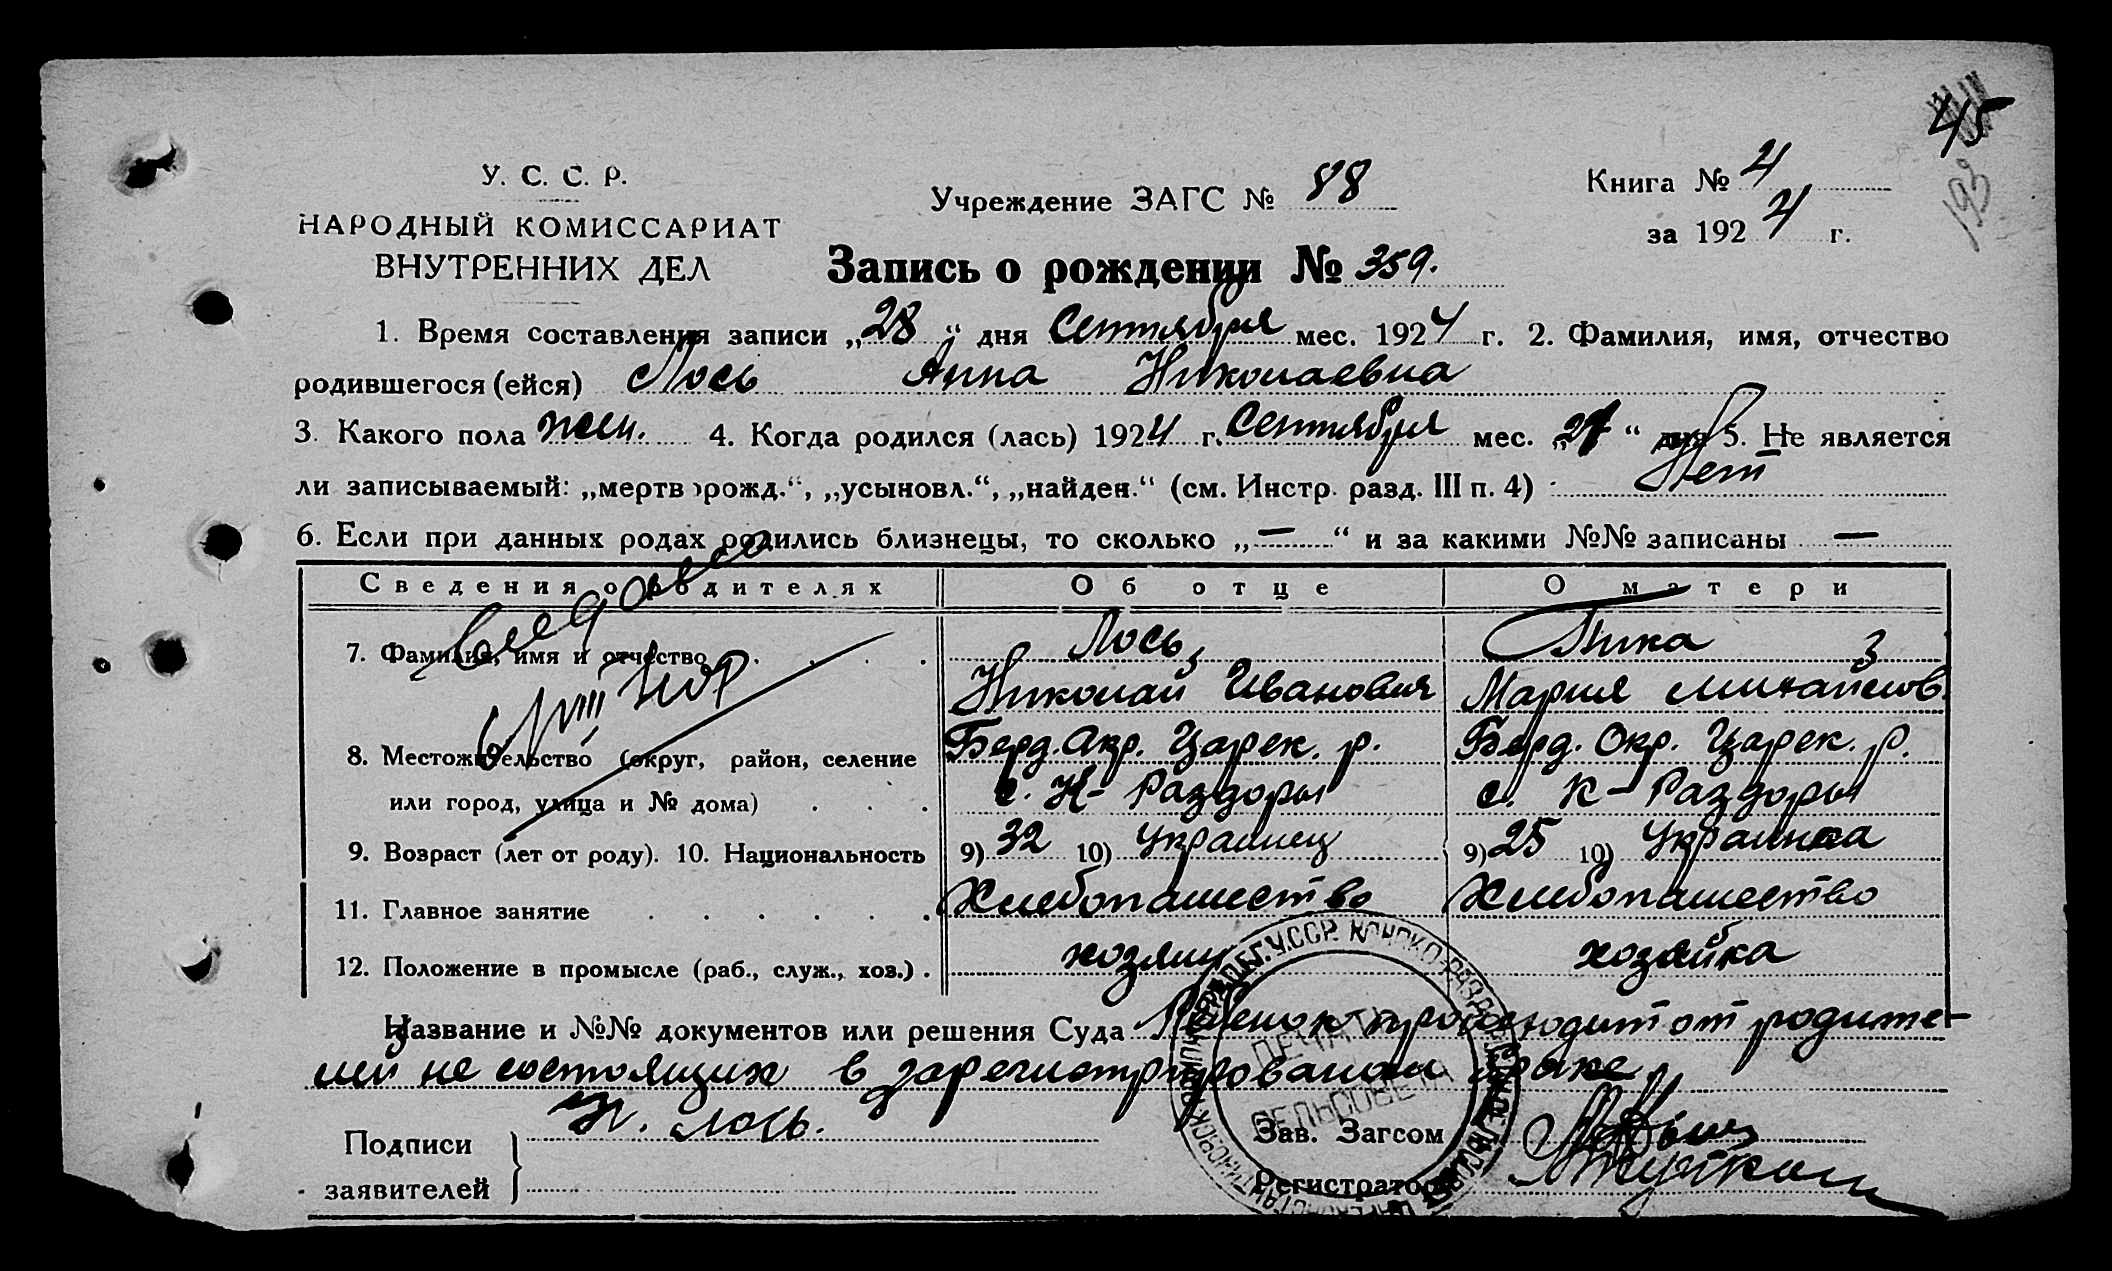 45
193
У. С. С. Р.
НАРОДНЫЙ КОМИССАРИАТ
ВНУТРЕННИХ ДЕЛ
Учреждение ЗАГС № 88
Книга № 4
за 1924 г.
Запись о рождении № 359.
1. Время составления записи „28“ дня Сентября мес. 1924 г. 2. Фамилия, имя, отчество
родившегося (ейся) Лось Анна Николаевна
3. Какого пола жен. 4. Когда родился (лась) 1924 г. Сентября мес. „27“ дня 5. Не является
ли записываемый: „мертворожд.“, „усыновл.“, „найден.“ (см. Инстр. разд. III п. 4) Нет
6. Если при данных родах родились близнецы, то сколько „—“ и за какими №№ записаны —
Сведения о родителях Об отце О матери
7. Фамилия, имя и отчество Лось, Пика
Николай Иванович Мария Михайлов.
8. Местожительство (округ, район, селение Берд. Окр. Царек. р. Берд. Окр. Царек. р.
или город, улица и № дома) с. К-Раздоры с. К-Раздоры
9. Возраст (лет от роду). 10. Национальность 9) 32 10) Украинец 9) 25 10) Украинка
11. Главное занятие Хлебопашество Хлебопашество
12. Положение в промысле (раб., служ., хоз.) хозяин хозяйка
Название и №№ документов или решения Суда Ребенок происходит от родите-
лей не состоящих в зарегистрированом браке
Подписи
заявителей
Н. Лось.
Зав. Загсом
Регистратор
ПЕЧАТЬ
СЕЛЬСОВЕТА